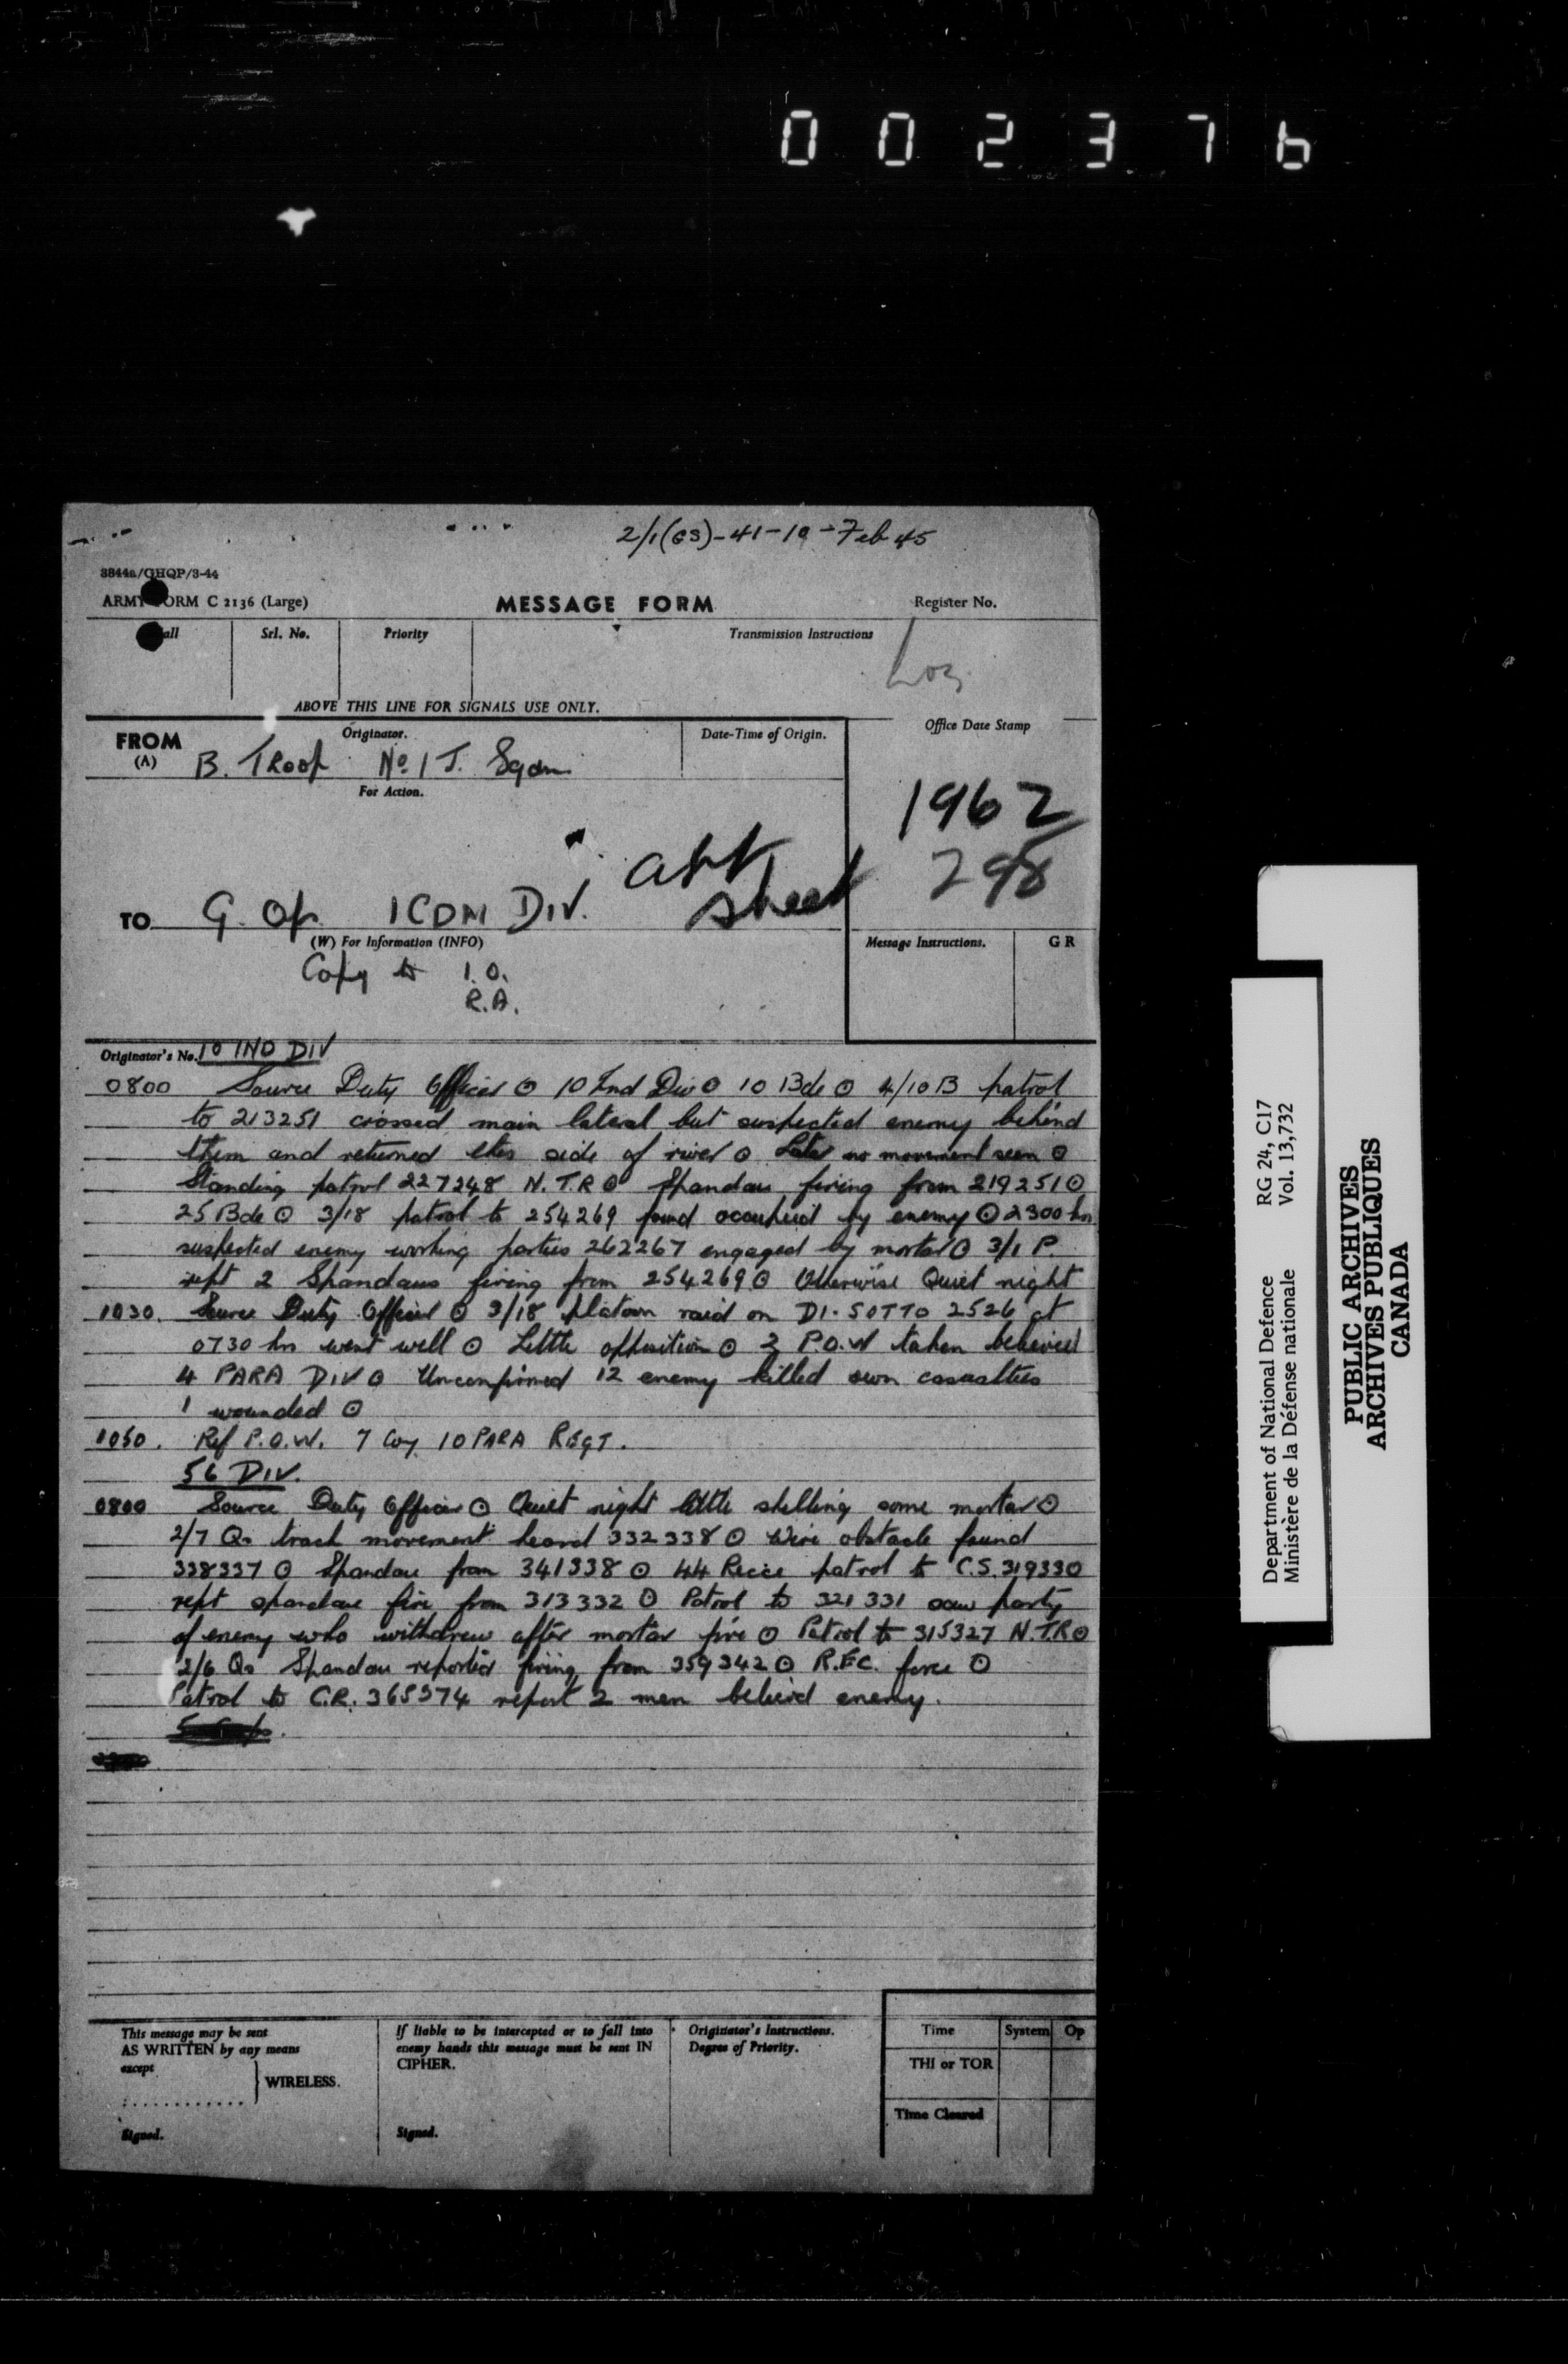 002376
2/1(GS)-41-10-Feb 45
3844a/GHQP/3-44
ARMY FORM C 2136 (Large)
MESSAGE FORM
Register No.
Call
Srl. No.
Priority
Transmission Instructions
ABOVE THIS LINE FOR SIGNALS USE ONLY.
Log
FROM
(A)
Originator.
Date-Time of Origin.
Office Date Stamp
B. Troop No 1 J. Sqdn
For Action.
1962
298
sheet
TO G. Op. 1 CDN DIV.
(W) For Information (INFO)
Message Instructions.
G R
Copy to I.O.
R.A.
Originator's No. 10 IND DIV
0800 Source Duty Officer ⊙ 10 Ind Div ⊙ 10 Bde ⊙ 4/10 B patrol
to 213251 crossed main lateral but suspected enemy behind
them and returned this side of river ⊙ Later no movement seen ⊙
Standing patrol 227248 N.T.R ⊙ Spandau firing from 219251 ⊙
25 Bde ⊙ 3/18 patrol to 254269 found occupied by enemy ⊙ 2300 hrs
suspected enemy working parties 262267 engaged by mortar ⊙ 3/1 P.
rept 2 Spandaus firing from 254269 ⊙ Otherwise Quiet night
1030. Source Duty Officer ⊙ 3/18 platoon raid on DI-SOTTO 2526 at
0730 hrs went well ⊙ Little opposition ⊙ 3 P.O.W taken believed
4 PARA DIV ⊙ Unconfirmed 12 enemy killed own casualties
1 wounded ⊙
1050. Ref P.O.W. 7 Coy 10 PARA REGT.
56 DIV.
0800 Source Duty Officer ⊙ Quiet night little shelling some mortar ⊙
2/7 Qs track movement heard 332338 ⊙ Wire obstacle found
338337 ⊙ Spandau from 341338 ⊙ 44 Recce patrol to C.S. 319330
rept spandau fire from 313332 ⊙ Patrol to 321331 saw party
of enemy who withdrew after mortar fire ⊙ Patrol to 315327 N.T.R ⊙
2/6 Qs Spandau reported firing from 359342 ⊙ R.F.C. force ⊙
Patrol to C.R. 365374 report 2 men belived enemy.
This message may be sent
AS WRITTEN by any means
except
WIRELESS.
Signed.
If liable to be intercepted or to fall into
enemy hands this message must be sent IN
CIPHER.
Signed.
Originator's Instructions.
Degree of Priority.
Time
System
Op
THI or TOR
Time Cleared
Department of National Defence
Ministère de la Défense nationale
RG 24, C17
Vol. 13,732
PUBLIC ARCHIVES
ARCHIVES PUBLIQUES
CANADA